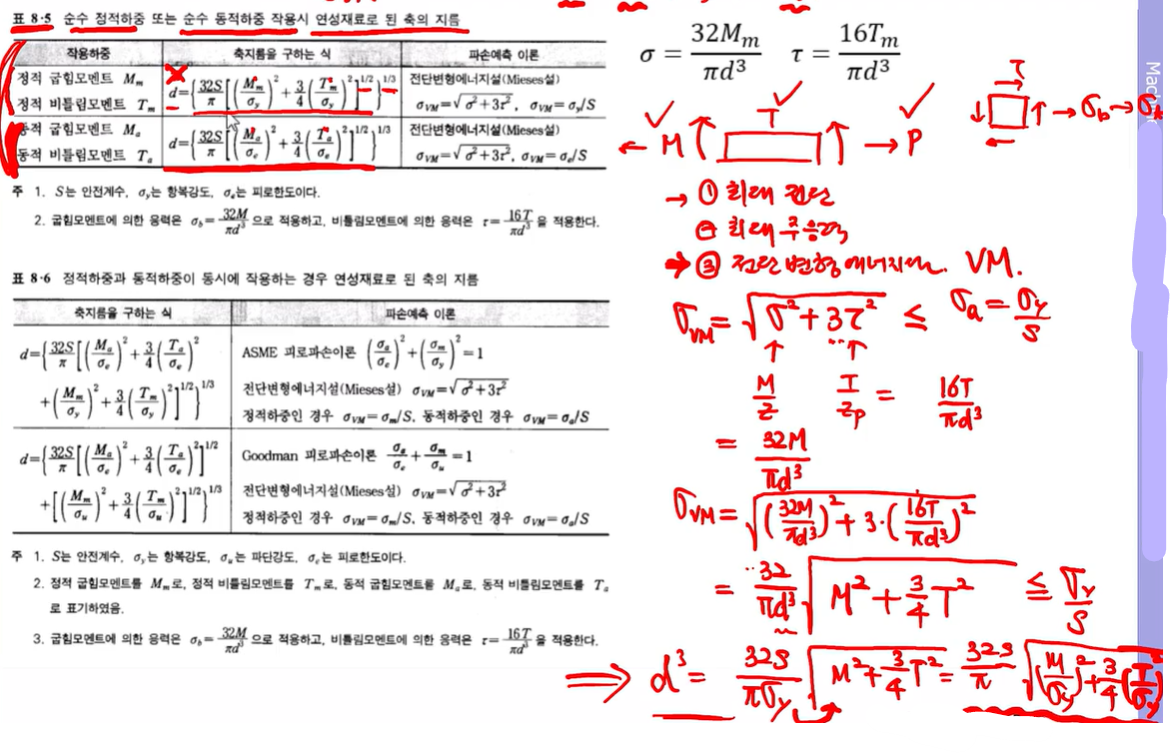 표 8·5 순수 정적하중 또는 순수 동적하중 작용시 연성재료로 된 축의 지름
작용하중 축지름을 구하는 식 파손예측 이론
정적 굽힘모멘트 M_m
정적 비틀림모멘트 T_m
d={32S/π[(M_m/σ_y)²+3/4(T_m/σ_y)²]^1/2}^1/3
전단변형에너지설(Mieses설)
σ_VM=√σ²+3τ², σ_VM=σ_y/S
동적 굽힘모멘트 M_a
동적 비틀림모멘트 T_a
d={32S/π[(M_a/σ_e)²+3/4(T_a/σ_e)²]^1/2}^1/3
전단변형에너지설(Mieses설)
σ_VM=√σ²+3τ², σ_VM=σ_e/S
주 1. S는 안전계수, σ_y는 항복강도, σ_e는 피로한도이다.
2. 굽힘모멘트에 의한 응력은 σ_b=32M/πd³으로 적용하고, 비틀림모멘트에 의한 응력은 τ=16T/πd³을 적용한다.
표 8·6 정적하중과 동적하중이 동시에 작용하는 경우 연성재료로 된 축의 지름
축지름을 구하는 식 파손예측 이론
d={32S/π[(M_a/σ_e)²+3/4(T_a/σ_e)²
+(M_m/σ_y)²+3/4(T_m/σ_y)²]^1/2}^1/3
ASME 피로파손이론 (σ_a/σ_e)²+(σ_m/σ_y)²=1
전단변형에너지설(Mieses설) σ_VM=√σ²+3τ²
정적하중인 경우 σ_VM=σ_m/S, 동적하중인 경우 σ_VM=σ_a/S
d={32S/π[(M_a/σ_e)²+3/4(T_a/σ_e)²]^1/2
+[(M_m/σ_u)²+3/4(T_m/σ_u)²]^1/2}^1/3
Goodman 피로파손이론 σ_a/σ_e+σ_m/σ_u=1
전단변형에너지설(Mieses설) σ_VM=√σ²+3τ²
정적하중인 경우 σ_VM=σ_m/S, 동적하중인 경우 σ_VM=σ_a/S
주 1. S는 안전계수, σ_y는 항복강도, σ_u는 파단강도, σ_e는 피로한도이다.
2. 정적 굽힘모멘트를 M_m로, 정적 비틀림모멘트를 T_m로, 동적 굽힘모멘트를 M_a로, 동적 비틀림모멘트를 T_a
로 표기하였음.
3. 굽힘모멘트에 의한 응력은 σ_b=32M/πd³으로 적용하고, 비틀림모멘트에 의한 응력은 τ=16T/πd³을 적용한다.
σ = 32M_m/πd³ τ = 16T_m/πd³
τ
M T P
→ σ_b →
→ ① 최대 전단
② 최대 주응력
→ ③ 전단변형에너지 VM.
σ_VM = √σ²+3τ² ≤ σ_a = σ_y/S
M/Z T/Z_P = 16T/πd³
= 32M/πd³
σ_VM = √(32M/πd³)²+3·(16T/πd³)²
= 32/πd³ √M²+3/4T² ≤ σ_y/S
⇒ d³ = 32S/πσ_y √M²+3/4T² = 32S/π √(M/σ_y)²+3/4(T/σ_y)²